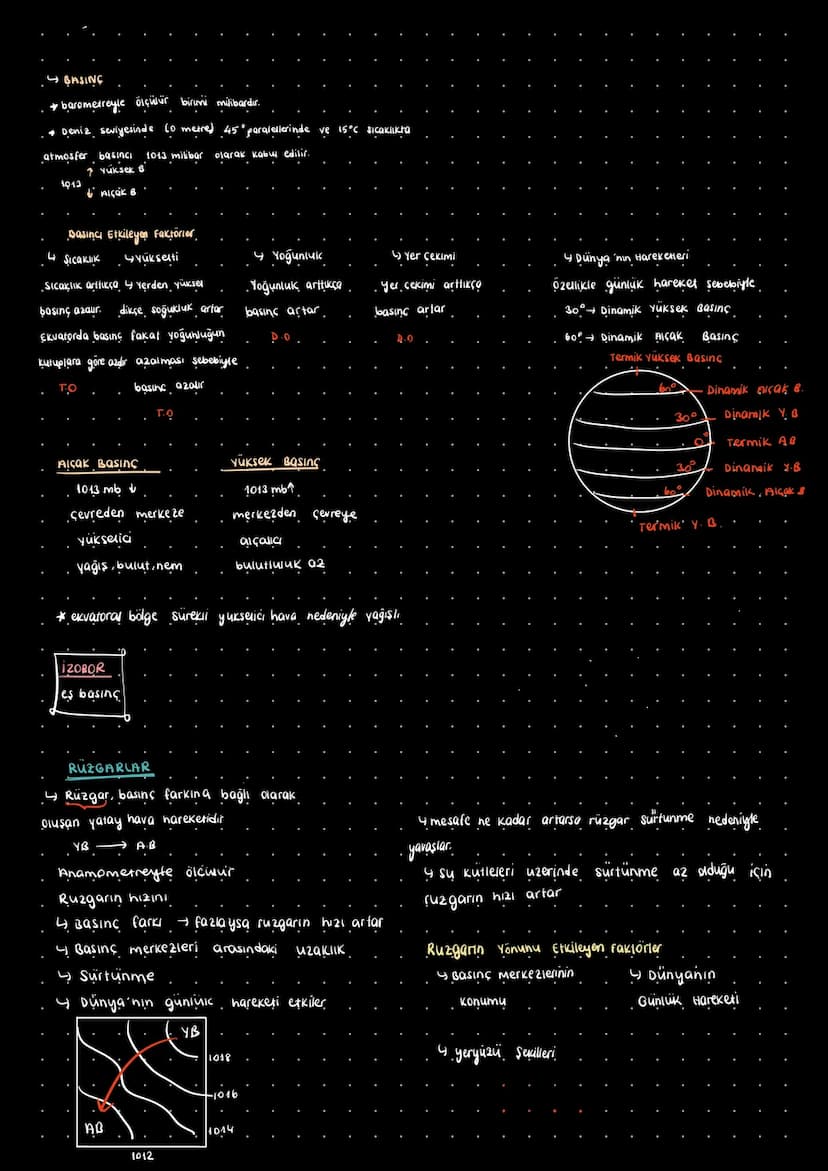 ↳ BASINÇ
* barometreyle ölçülür birimi milibardır.
* Deniz seviyesinde (0 metre) 45° paralellerinde ve 15°C sıcaklıkta
atmosfer basıncı 1013 milibar olarak kabul edilir.
↑ Yüksek B
1013
↓ Alçak B
Basıncı Etkileyen Faktörler
↳ Sıcaklık
Sıcaklık arttıkça
basınç azalır.
Ekvatorda basınç
kutuplara göre azdır
T.O
↳ Yükselti
↳ Yerden yüksel
dikçe soğukluk artar
fakat yoğunluğun
azalması sebebiyle
basınç azalır
T.O
↳ Yoğunluk
Yoğunluk arttıkça
basınç artar
D.O
↳ Yer Çekimi
Yer çekimi arttıkça
basınç artar
D.O
↳ Dünya'nın Hareketleri
Özellikle günlük hareket sebebiyle
30° → Dinamik Yüksek Basınç
60° → Dinamik Alçak Basınç
Termik Yüksek Basınç
60° Dinamik B.
30° Dinamik Y.B
0° Termik AB
30° Dinamik Y.B
60° Dinamik Alçak B
Termik Y.B.
Alçak Basınç
1013 mb ↓
çevreden merkeze
yükselici
yağış, bulut, nem
Yüksek Basınç
1013 mb ↑
merkezden çevreye
alçalıcı
bulutluluk az
* ekvatoral bölge sürekli yükselici hava nedeniyle yağışlı
İZOBOR
eş basınç
RÜZGARLAR
↳ Rüzgar, basınç farkına bağlı olarak
oluşan yatay hava hareketidir
YB → A.B
Anamometreyle ölçülür
Rüzgarın hızını
↳ Basınç farkı → fazlaysa rüzgarın hızı artar
↳ Basınç merkezleri arasındaki uzaklık
↳ Sürtünme
↳ Dünya'nın günlük hareketi etkiler
YB
1018
1016
1014
AB
1012
↳ mesafe ne kadar artarsa rüzgar sürtünme nedeniyle
yavaşlar.
↳ su kütleleri üzerinde sürtünme az olduğu için
rüzgarın hızı artar
Rüzgarın Yönünü Etkileyen Faktörler
↳ Basınç merkezlerinin
konumu
↳ Dünyanın
Günlük Hareketi
↳ yeryüzü Şekilleri